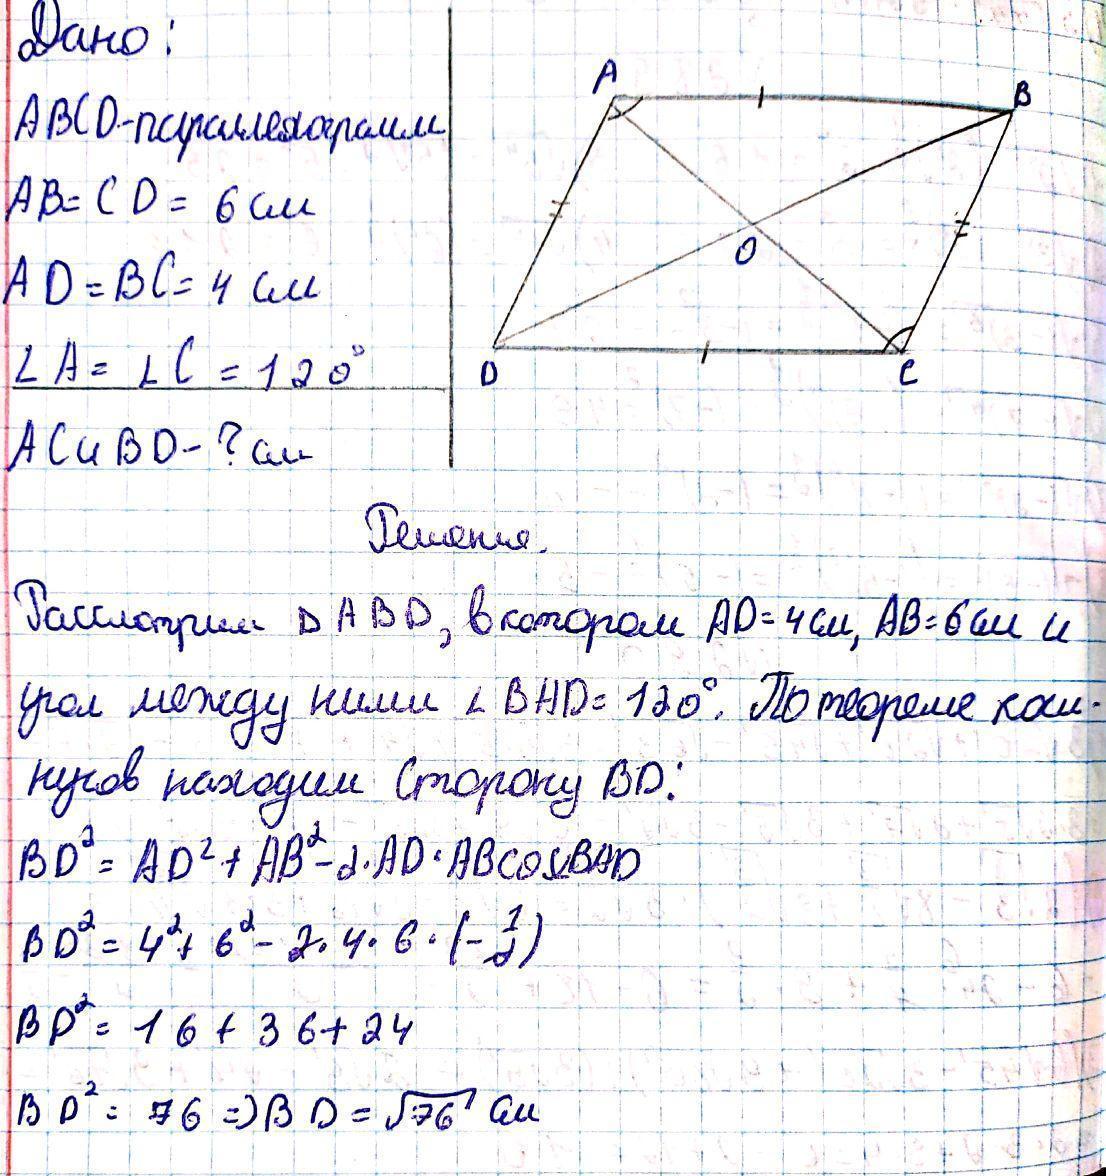 Дано:
ABCD-параллелограмм
AB = CD = 6 см
AD = BC = 4 см
∠A = ∠C = 120°
AC и BD - ? см
A
B
O
D
C
Решения.
Рассмотрим △ ABD, в котором AD = 4 см, AB = 6 см и
угол между ними ∠BAD = 120°. По теореме коси-
нусов находим сторону BD:
BD² = AD² + AB² - 2·AD·AB cos∠BAD
BD² = 4² + 6² - 2·4·6·(-1/2)
BD² = 16 + 36 + 24
BD² = 76 => BD = √76 см